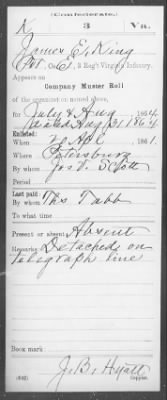 (Confederate.)
K 3 Va.
James E. King
Pvt, Co. E, 3 Reg't Virginia Infantry.
Appears on
Company Muster Roll
of the organization named above,
for July & Aug, 1864.
dated Aug 31 1864
Enlisted:
When Apl, 1861.
Where Petersburg
By whom Jos. V. Scott
Period
Last paid:
By whom Ths Tabb
To what time
Present or absent Absent
Remarks: Detached on
telegraph line
Book mark:
J. B. Hyatt
(642) Copyist.